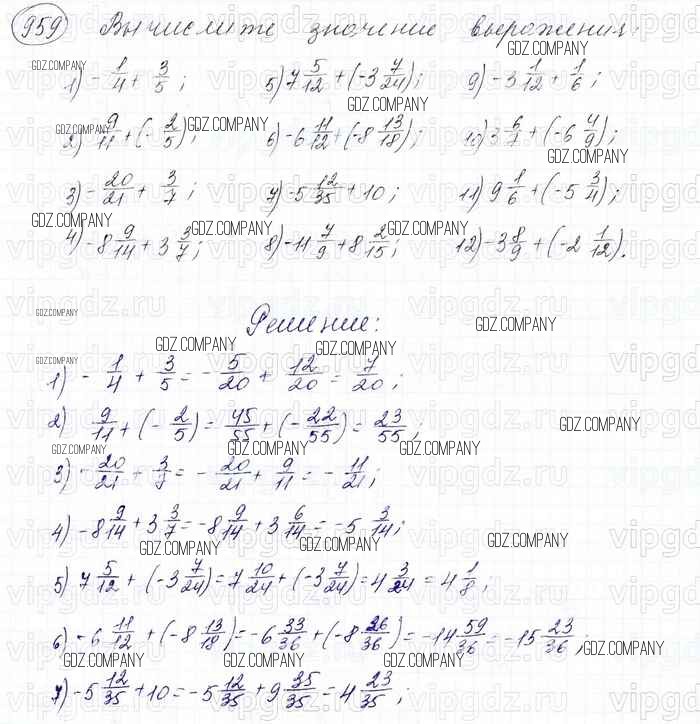 959) Вычислите значение выражения:
1) -1/4 + 3/5; 5) 7 5/12 + (-3 7/24); 9) -3 1/12 + 1/6;
2) 9/11 + (-2/5); 6) -6 11/12 + (-8 13/18); 10) 3 6/7 + (-6 4/9);
3) -20/21 + 3/7; 7) -5 12/35 + 10; 11) 9 1/6 + (-5 3/4);
4) -8 9/14 + 3 3/7; 8) -11 7/9 + 8 2/15; 12) -3 8/9 + (-2 1/12).
Решение:
1) -1/4 + 3/5 = -5/20 + 12/20 = 7/20;
2) 9/11 + (-2/5) = 45/55 + (-22/55) = 23/55;
3) -20/21 + 3/7 = -20/21 + 9/11 = -11/21;
4) -8 9/14 + 3 3/7 = -8 9/14 + 3 6/14 = -5 3/14;
5) 7 5/12 + (-3 7/24) = 7 10/24 + (-3 7/24) = 4 3/24 = 4 1/8;
6) -6 11/12 + (-8 13/18) = -6 33/36 + (-8 26/36) = -14 59/36 = -15 23/36;
7) -5 12/35 + 10 = -5 12/35 + 9 35/35 = 4 23/35;
GDZ.COMPANY
vipgdz.ru